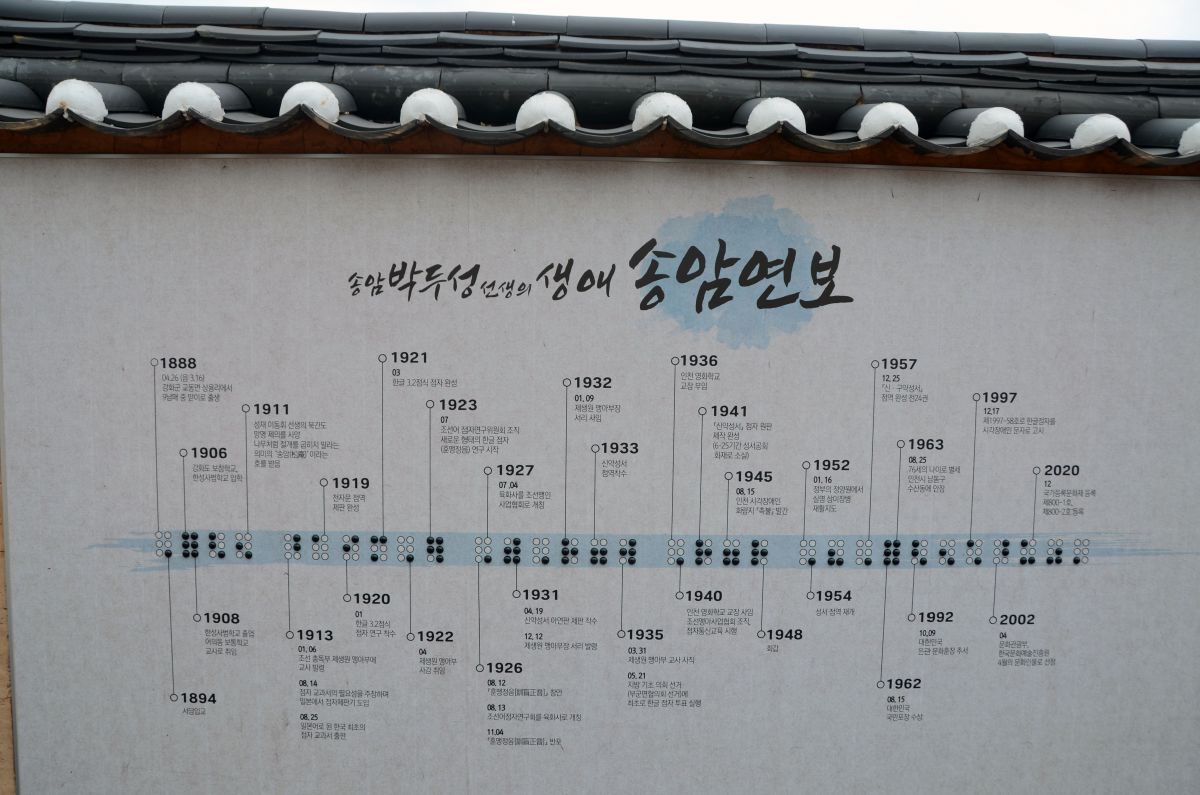 송암박두성선생의 생애 송암연보
1888
04.26 (음 3.16)
강화군 교동면 상용리에서
9남매 중 맏이로 출생
1894
서당입교
1906
강화도 보창학교,
한성사범학교 입학
1908
한성사범학교 졸업
어의동 보통학교
교사로 취임
1911
성재 이동휘 선생의 북간도
망명 제의를 사양
나무처럼 절개를 굽히지 말라는
의미의 "송암(松庵)" 이라는
호를 받음
1913
01. 06
조선 총독부 제생원 맹아부에
교사 발령
08. 14
점자 교과서의 필요성을 주장하며
일본에서 점자제판기 도입
08. 25
일본어로 된 한국 최초의
점자 교과서 출판
1919
천자문 점역
제판 완성
1920
01
한글 3.2점식
점자 연구 착수
1921
03
한글 3.2점식 점자 완성
1922
04
제생원 맹아부
사감 취임
1923
07
조선어 점자연구위원회 조직
새로운 형태의 한글 점자
(훈맹정음) 연구 시작
1926
08. 12
「훈맹정음(訓盲正音)」 창안
08. 13
조선어점자연구회를 육화사로 개칭
11.04
「훈맹정음(訓盲正音)」 반포
1927
07 .04
육화사를 조선맹인
사업협회로 개칭
1931
04. 19
신약성서 아연판 제판 착수
12. 12
제생원 맹아부장 서리 발령
1932
01. 09
제생원 맹아부장
서리 사임
1933
신약성서
점역착수
1935
03. 31
제생원 맹아부 교사 사직
05. 21
지방 기초 의회 선거
(부군면협의회 선거)에
최초로 한글 점자 투표 실행
1936
인천 영화학교
교장 부임
1940
인천 영화학교 교장 사임
조선맹아사업협회 조직,
점자통신교육 시행
1941
「신약성서」 점자 원판
제작 완성
(6·25기간 성서공회
화재로 소실)
1945
08. 15
인천 시각장애인
회람지 「촉불」 발간
1948
회갑
1952
01. 16
정부의 정양원에서
실명 상이장병
재활지도
1954
성서 점역 재개
1957
12. 25
「신·구약성서」
점역 완성 전24권
1962
08. 15
대한민국
국민포장 수상
1963
08. 25
76세의 나이로 별세
인천시 남동구
수산동에 안장
1992
10..09
대한민국
은관 문화훈장 추서
1997
12.17
제1997-58호로 한글점자를
시각장애인 문자로 고시
2002
04
문화관광부,
한국문화예술진흥원
4월의 문화인물로 선정
2020
12
국가등록문화재 등록
제800-1호,
제800-2호 등록